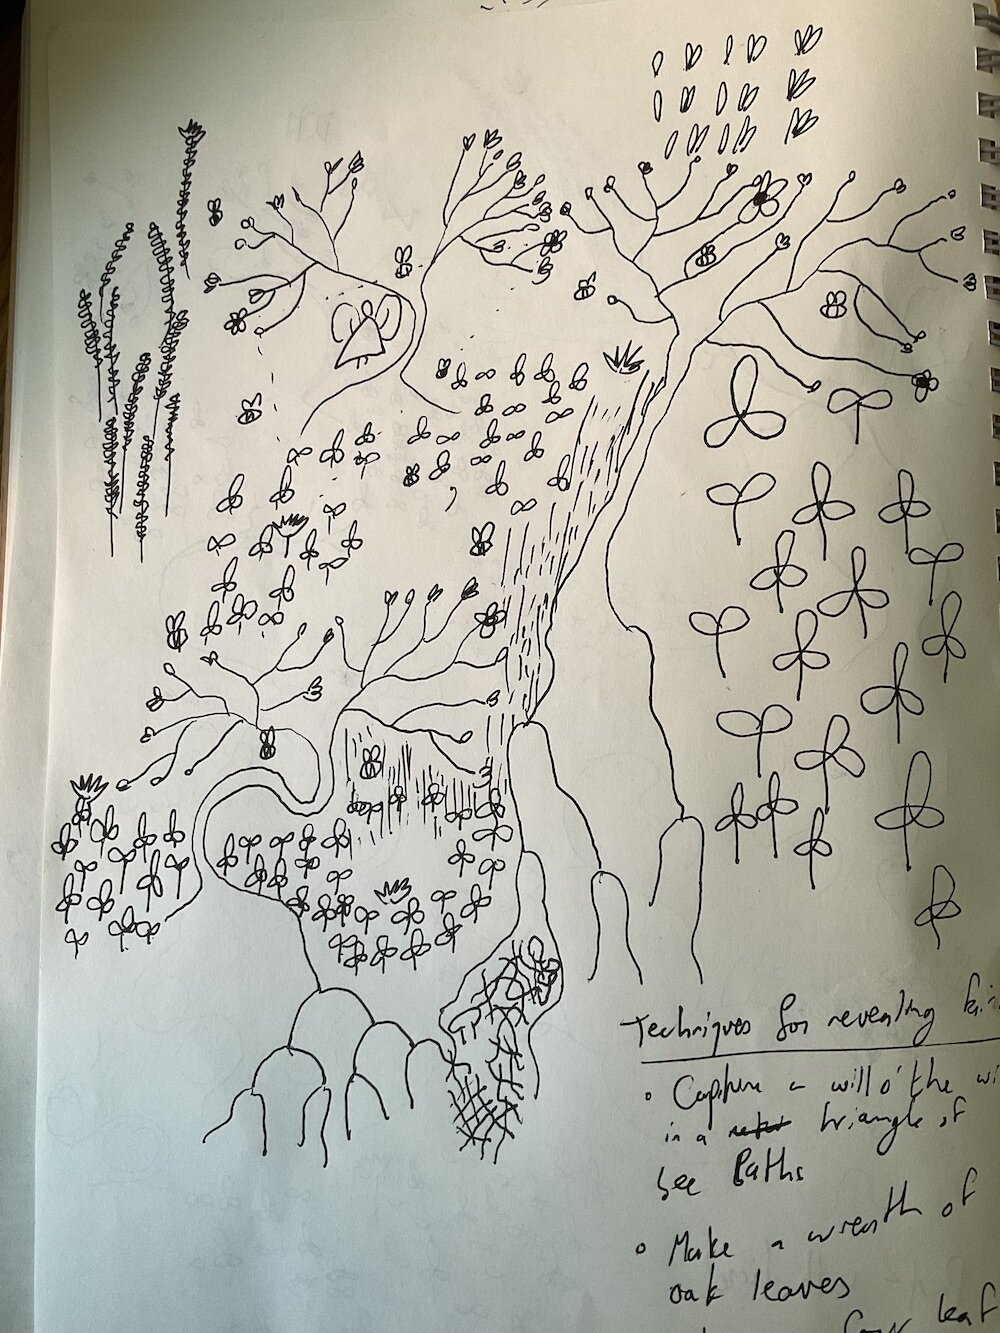 Techniques for revealing
• Capture a will o' the wi
in a triangle of
see Paths
• Make a wreath of
oak leaves
four leaf